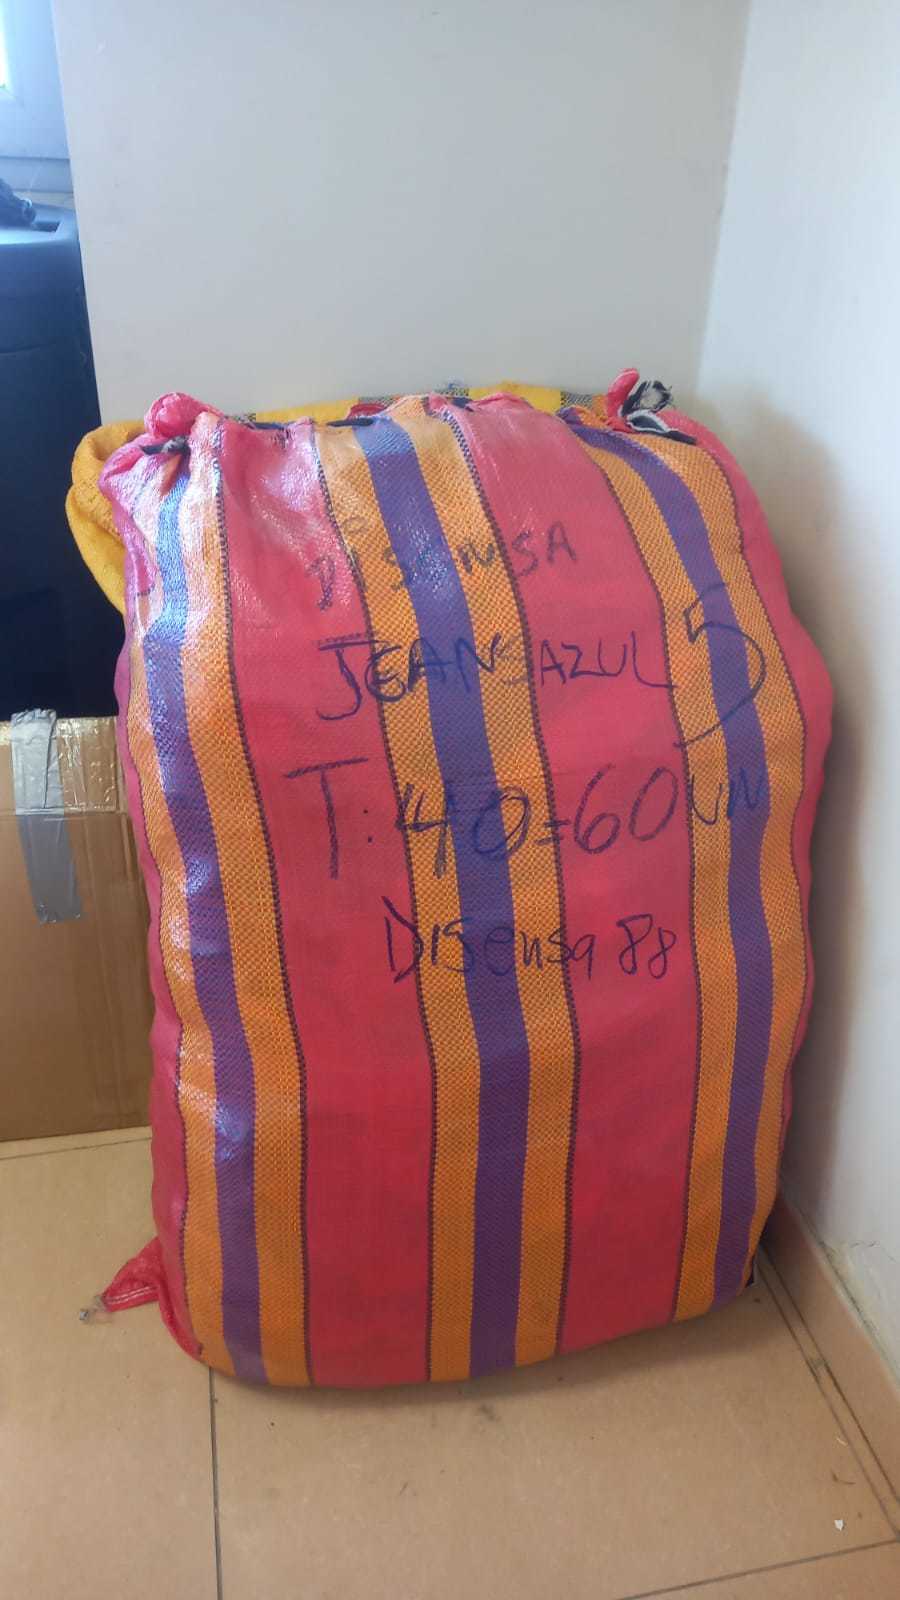 DISENSA
JEANS AZUL 5
T: 40=60 UN
Disensa 88